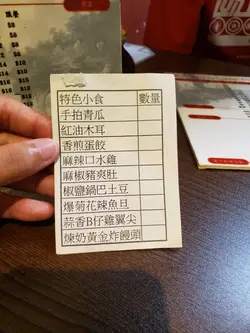 特色小食 數量
手拍青瓜
紅油木耳
香煎蛋餃
麻辣口水雞
麻椒豬爽肚
椒鹽鍋巴土豆
爆菊花辣魚旦
蒜香B仔雞翼尖
煉奶黃金炸饅頭